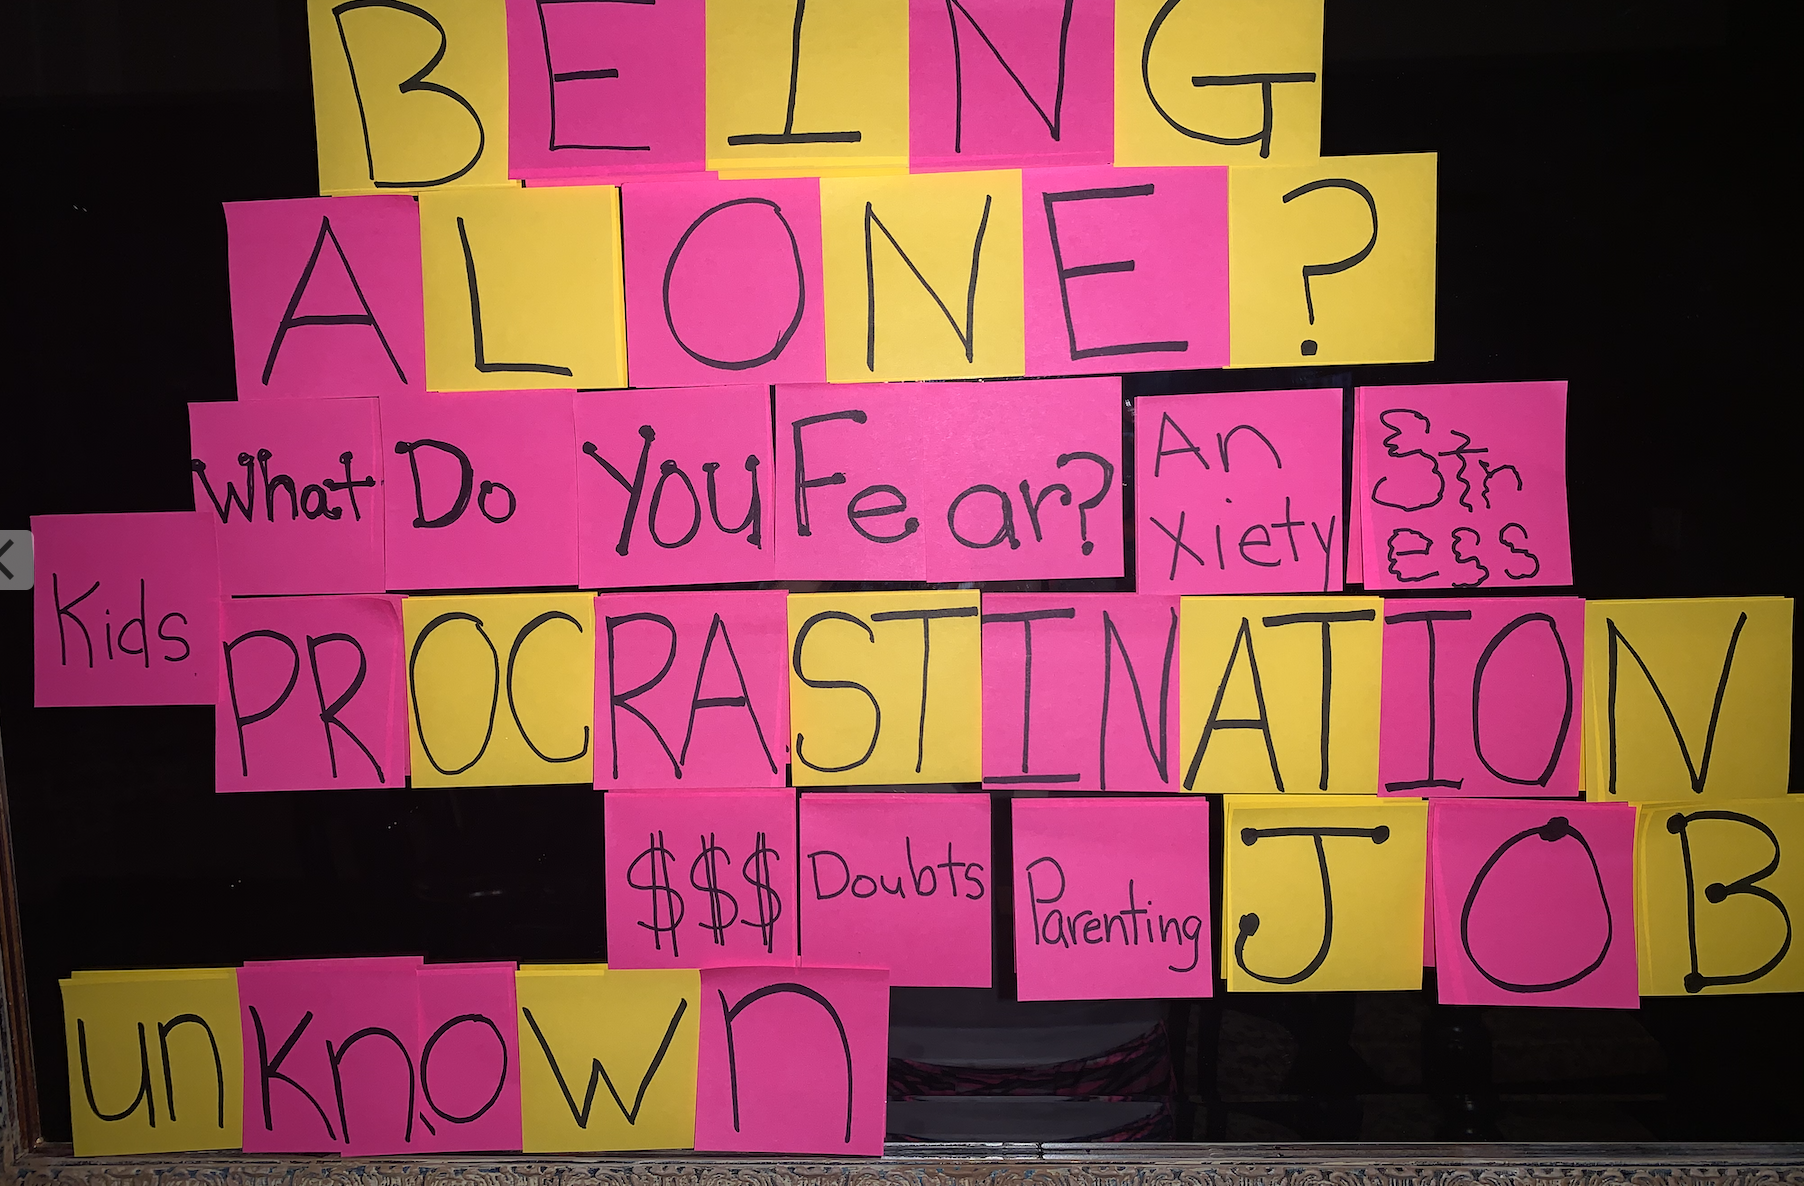 BEING
ALONE?
What Do You Fear?
An
xiety
Str
ess
Kids
PROCRASTINATION
$$$
Doubts
Parenting
JOB
unknown